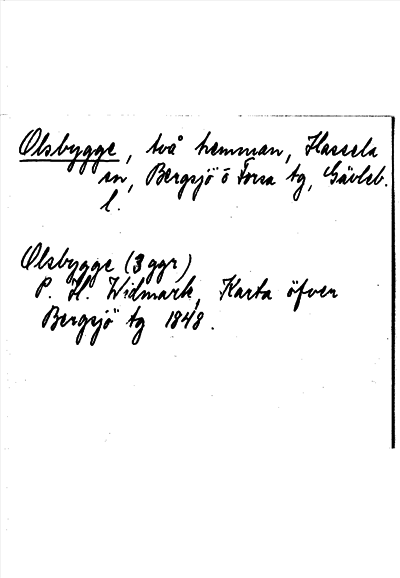 Olsbygge, två hemman, Hassela
sn, Bergsjö o Forsa tg, Gävleb.
l.
Olsbygge (3 ggr)
P. H. Widmark, Karta öfver
Bergsjö tg 1848.